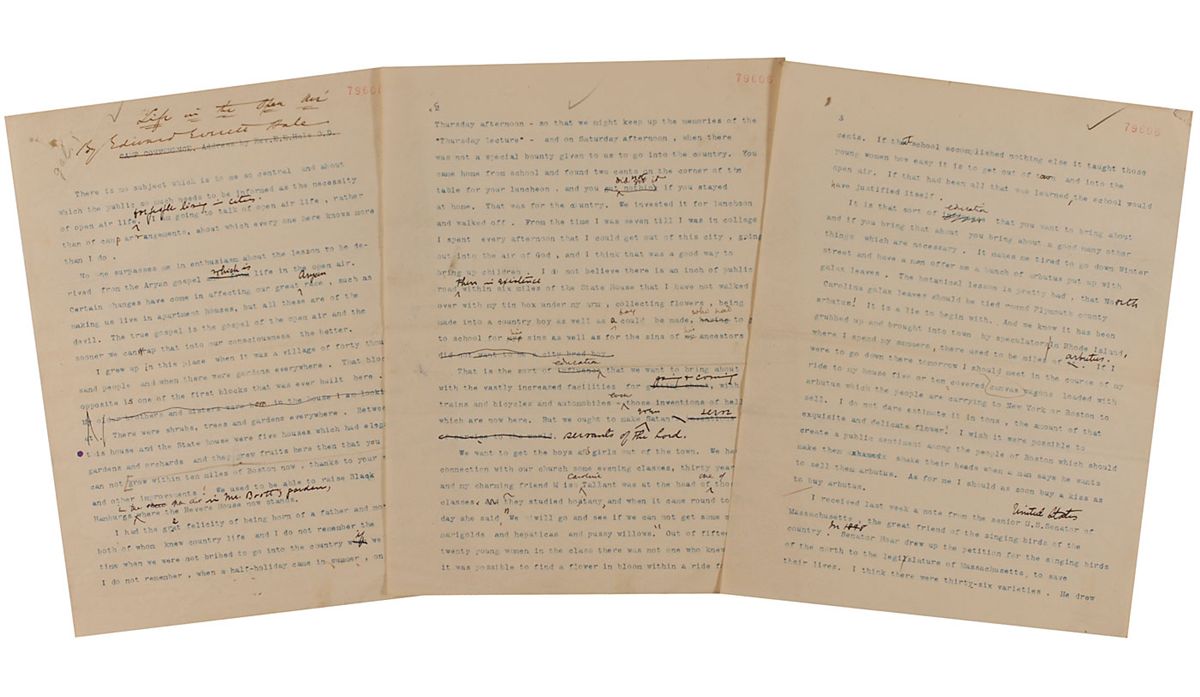 Life in the Open Air
By Edward Everett Hale
79606
CAMP CONFERENCE, Address by Rev. E.E. Hale D.D.
There is no subject which is to me so central and about
which the public so much needs to be informed as the necessity
of open air life for people living in cities. I am going to talk of open air life, rather
than of camp arrangements, about which every one here knows more
than I do.
No one surpasses me in enthusiasm about the lesson to be de-
rived from the Aryan gospel which is life in the open air.
Certain changes have come in affecting our great Aryan race, such as
making us live in apartment houses, but all these are of the
devil. The true gospel is the gospel of the open air and the
sooner we can rap that into our consciousness the better.
I grew up in this place when it was a village of forty thou
sand people and when there were gardens everywhere. That bloc
opposite is one of the first blocks that was ever built here.
My brothers and sisters were born in the house I am looki
at. There were shrubs, trees and gardens everywhere. Betwee
this house and the State house were five houses which had elega
gardens and orchards and they grew fruits here then that you
can not grow within ten miles of Boston now, thanks to your
and other improvements! We used to be able to raise Black
in the open air in Mr. Bott's garden,
Hamburgs where the Revere House now stands.
I had the great felicity of being born of a father and mot
both of whom knew country life and I do not remember the
time when we were not bribed to go into the country if we
I do not remember, when a half-holiday came in summer, on
2
79606
Thursday afternoon - so that we might keep up the memories of the
"Thursday lecture" - and on Saturday afternoon, when there
was not a special bounty given to us to go into the country. You
came home from school and found two cents on the corner of the
table for your luncheon, and you did not it got nothing if you stayed
at home. That was for the country. We invested it for luncheon
and walked off. From the time I was seven till I was in college
I spent every afternoon that I could get out of this city, going
out into the air of God, and I think that was a good way to
bring up children. I do not believe there is an inch of public
road then in existence within six miles of the State House that I have not walked
over with my tin box under my arm, collecting flowers, being
made into a country boy as well as a boy could be made, who had having to g
to school for his sins as well as for the sins of his ancestors
did not want to be a city bred boy.
That is the sort of education influence that we want to bring about
with the vastly increased facilities for going & coming, with
trains and bicycles and automobiles - even those inventions of hell
which are now here. But we ought to make Satan
servants of the Lord.
We want to get the boys and girls out of the town. We had
connection with our church some evening classes, thirty year
and my charming friend Miss Caroline Tallant was at the head of one of thos
classes, and they studied botany, and when it came round to
day she said, "We will go and see if we can not get some m
marigolds and hepaticas and pussy willows." Out of fifteen
twenty young women in the class there was not one who knew
it was possible to find a flower in bloom within a ride f
3
79606
cents. If that school accomplished nothing else it taught those
young women how easy it is to get out of town and into the
open air. If that had been all that was learned, the school would
have justified itself.
It is that sort of education that you want to bring about
and if you bring that about you bring about a good many other
things which are necessary. It makes me tired to go down Winter
street and have a men offer me a bunch of arbutus put up with
galax leaves. The botanical lesson is pretty bad, that North
Carolina galax leaves should be tied round Plymouth county
arbutus! It is a lie to begin with. And we know it has been
grubbed up and brought into town by speculators. In Rhode Island,
where I spend my summers, there used to be miles of arbutus. If I
were to go down there tomorrow I should meet in the course of my
ride to my house five or ten covered canvas wagons loaded with
arbutus which the people are carrying to New York or Boston to
sell. I do not dare estimate it in tons, the amount of that
exquisite and delicate flower! I wish it were possible to
create a public sentiment among the people of Boston which should
make them shake their heads when a man says he wants
to sell them arbutus. As for me I should as soon buy a kiss as
to buy arbutus.
I received last week a note from the senior United States U.S. Senator of
Massachusetts, the great friend of the singing birds of the
country. In Senator Hoar drew up the petition for the singing birds
of the north to the legislature of Massachusetts, to save
their lives. I think there were thirty-six varieties. He drew